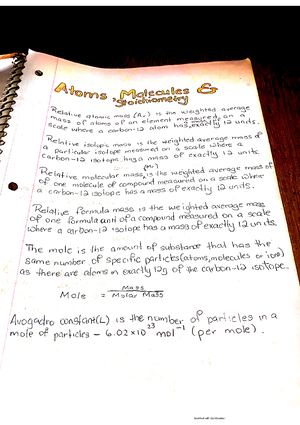 Atoms, Molecules &
Stoichiometry
Relative atomic mass (Ar) is the weighted average
mass of atoms of an element measured on a
scale where a carbon-12 atom has exactly 12 units.
Relative isotopic mass is the weighted average mass of
a particular isotope measured on a scale where a
carbon-12 isotope has a mass of exactly 12 units.
(Mr)
Relative molecular mass is the weighted average mass of
of one molecule of compound measured on a scale where
a carbon-12 isotope has a mass of exactly 12 units.
Relative formula mass is the weighted average mass
of one formula unit of a compound measured on a scale
where a carbon-12 isotope has a mass of exactly 12 units.
The mole is the amount of substance that has the
same number of specific particles (atoms, molecules or ions)
as there are atoms in exactly 12g of the carbon-12 isotope.
Mole = Mass
Molar Mass
Avogadro constant (L) is the number of particles in a
mole of particles – 6.02 × 10²³ mol⁻¹ (per mole).